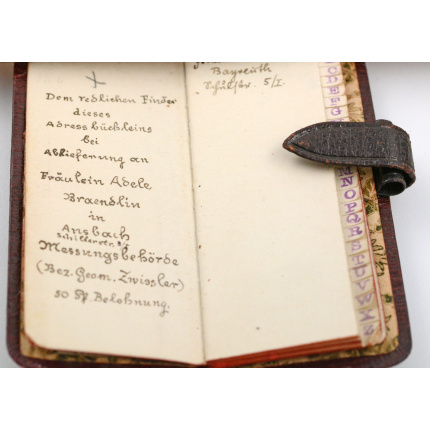 Dem redlichen Finder
dieses
Adressbüchleins
bei
Ablieferung an
Fräulein Adele
Braendlin
in
Ansbach
Messungsbehörde
(Bez. Geom. Zwissler)
50 Pf Belohnung.
Bayreuth
5/I.
C
D
E
F
G
M
N
O
P
Q
R
S
T
U
V
W
X
Z